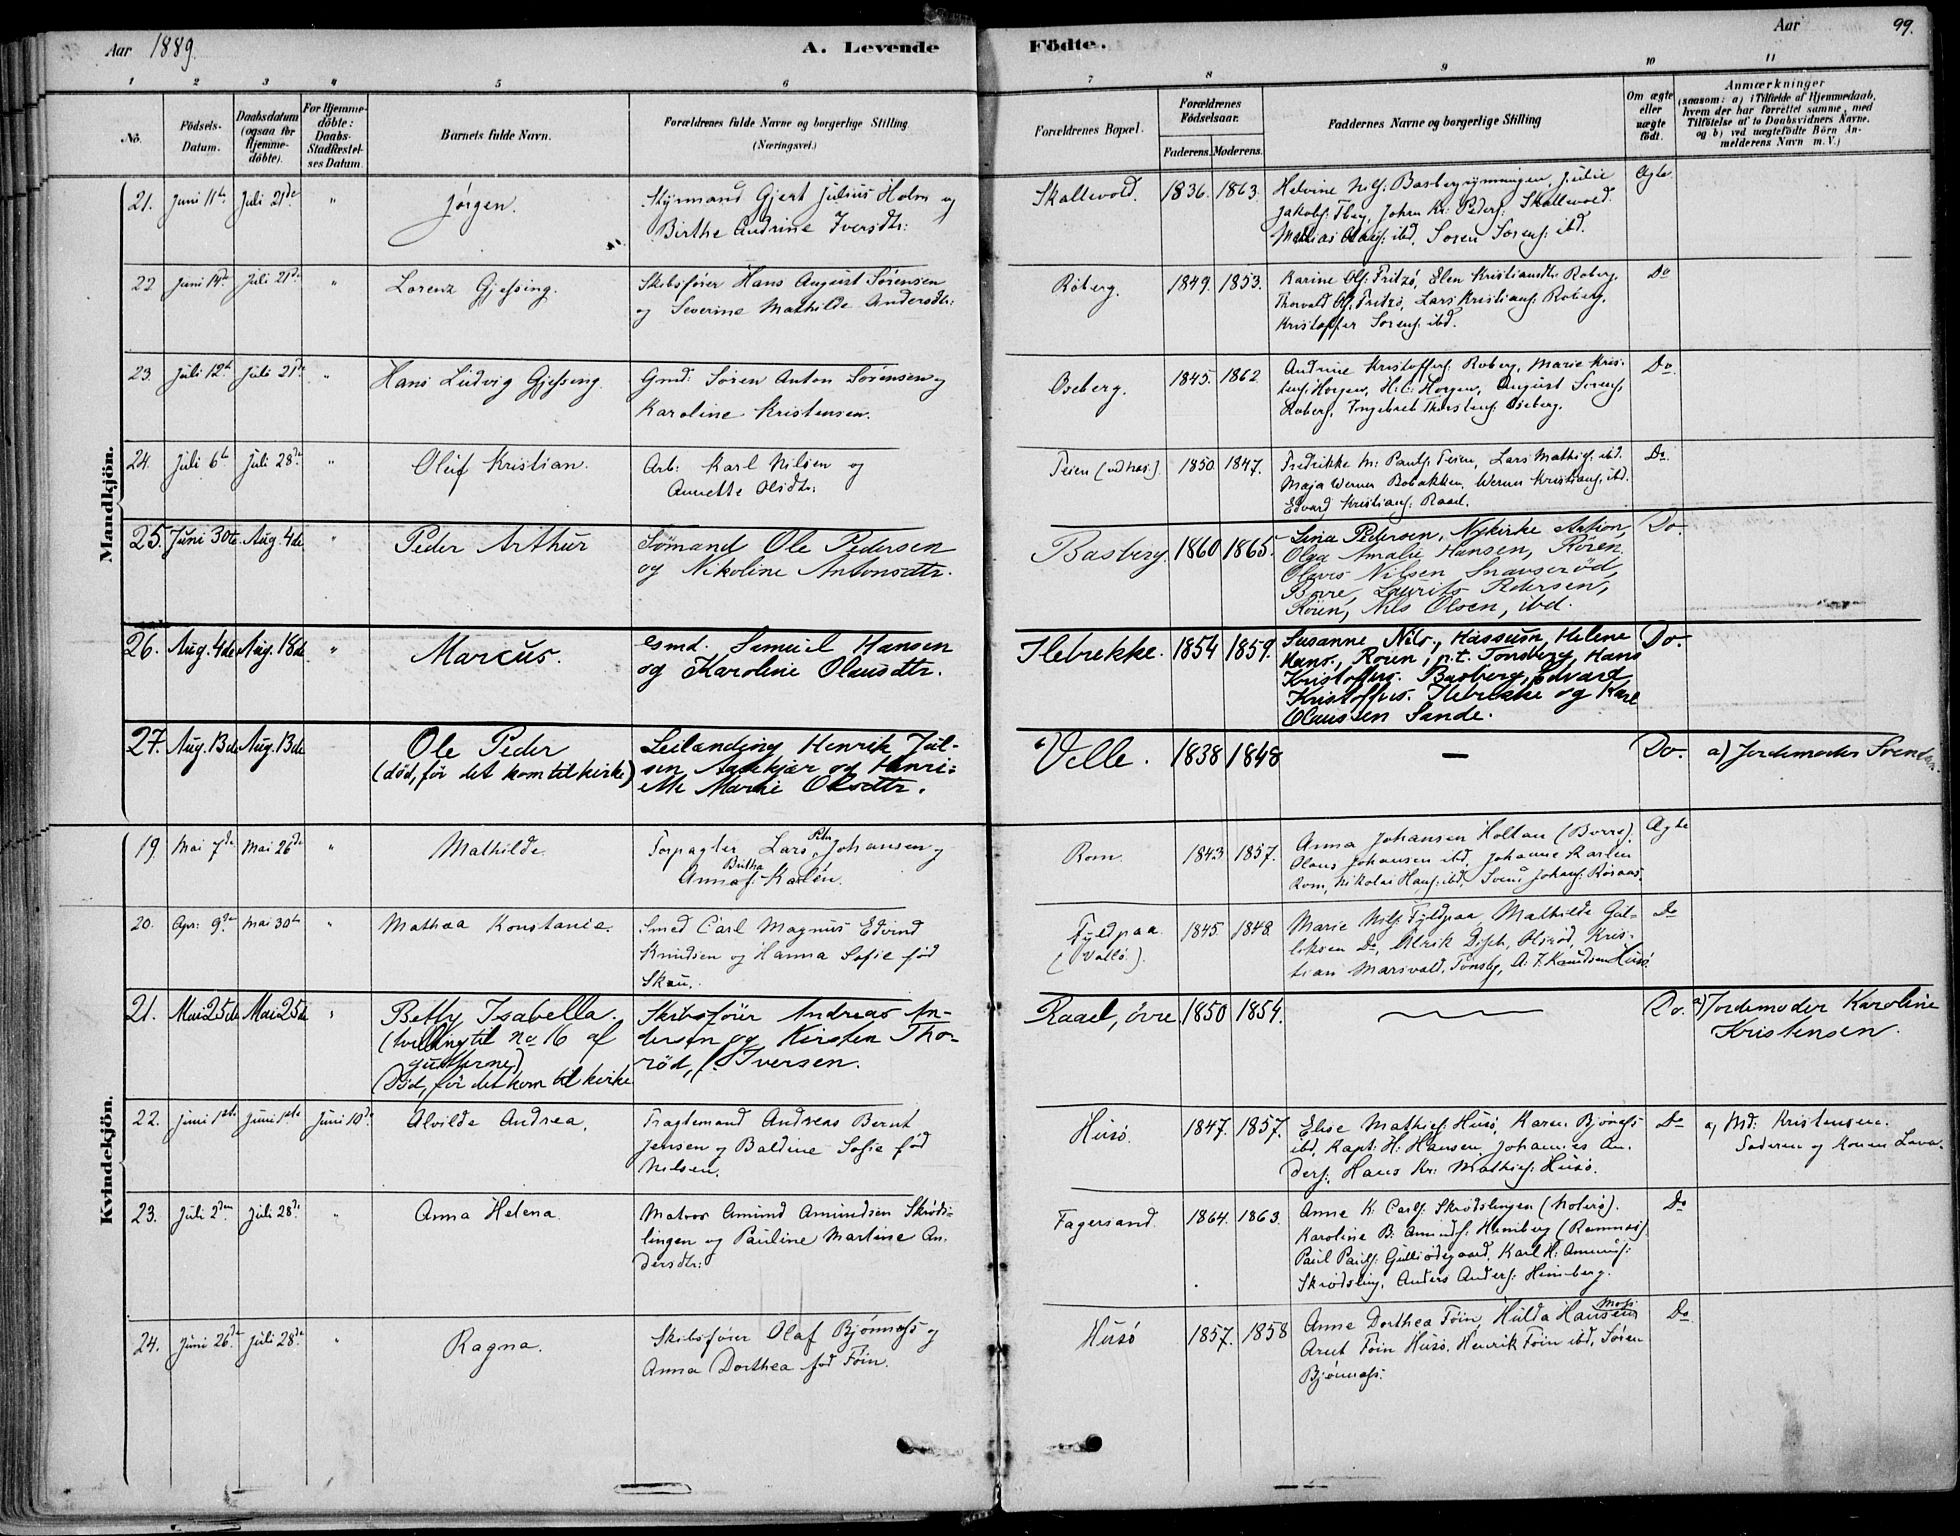 Aar 1889.
A. Levende Födte.
Aar
99.
1 2 3 4 5 6 7 8 9 10 11
No.
Födsels-Datum.
Daabsdatum (ogsaa for Hjemme-döbte).
For Hjemme-döbte: Daabs-Stadfæstel-ses Datum.
Barnets fulde Navn.
Forældrenes fulde Navne og borgerlige Stilling (Næringsvei.)
Forældrenes Bopæl.
Forældrenes Födselsaar.
Faderens. Moderens.
Faddernes Navne og borgerlige Stilling
Om ægte eller uægte födt.
Anmærkninger
(saasom: a) i Tilfælde af Hjemmedaab, hvem der har forrettet samme, med Tilföielse af to Daabsvidners Navne, og b) ved uægtefödte Börn An-melderens Navn m. V.)
Mandkjön.
21. Juni 11te Juli 21de " Jørgen.
Styrmand Gjert Julius Holm og
Birthe Andrine Iversdtr:
Skallevold. 1836. 1863.
Helvine Nilss: Basbergrynningen, Julie
Jakobs: Tbrg, Johan Kr: Peders: Skallevold.
Mathias Olaus: ibd, Soren Sorens: ibd.
Ægte.
22. Juni 14de Juli 21de " Lorenz Gjessing.
Skibsfører Hans August Sørensen
og Severine Mathilde Andersdtr:
Røberg. 1849. 1853.
Karine Ols: Fritzø, Elen Kristiansdtr. Roberg,
Thorvald Ols: Fritzø, Lars Kristians: Roberg,
Kristoffer Sorens: ibd.
Do
23. Juli 12te Juli 21de " Hans Ludvig Gjessing.
Gmd: Søren Anton Sørensen og
Karoline Kristensen.
Oseberg. 1845. 1862
Andrine Kristoffers: Roberg, Marie Kris-
tens: Horgen, H. C: Horgen, August Sorens:
Roberg, Ingebret Thorstens: Oseberg.
Do.
24. Juli 6te Juli 28de " Oluf Kristian.
Arb: Karl Nilsen og
Annette Olsdtr:
Teien (ved næs:) 1850. 1847.
Fredrikke M: Pauls: Teien, Lars Mathis: ibd.
Maja Werner Bobakken, Werner Kristians: ibd.
Edvard Kristians: Raael.
Do.
25. Juni 30te. Aug. 4de " Peder Arthur
Sømand Ole Pedersen
og Nikoline Antonsdtr.
Basberg. 1860 1865.
Lina Pedersen, Nykirke Station,
Olga Amalie Hansen, Røren,
Olaves Nilsen Snauserød,
Borre, Laurits Pedersen,
Røren, Nils Olsen, ibd.
Do.
26. Aug. 4de Aug. 18de " Marcus.
Gsmd. Samuel Hansen
og Karoline Olausdtr.
Ilebrekke. 1854 1859.
Susanne Nils., Hassum, Helene
Hans., Roren, p.t. Tonsberg, Hans
Kristoffers. Basberg, Edvard
Kristoffers. Ilebrekke og Karl
Claussen Sande.
Do.
27. Aug. 13de Aug. 13de
Ole Peder
(død, før det kom til kirke)
Leilanding Henrik Jul-
sen Aadekjær og Henri-
ette Marie Olsdtr.
Velle. 1838 1848 —
Do. a) Jordemoder Svendsen.
Kvindekjön.
19. Mai 7de Mai 26de " Mathilde
Forpagter Lars Peter Johansen og
Anna Britha f: Karlén.
Rom. 1843 1857.
Anna Johansen Holtan (Borre).
Olaus Johansen ibd, Johanne Karlén
Rom, Nikolai Hans: ibd, Svend Johans: Roraas.
Ægte
20. Apr: 9de Mai 30te " Mathea Konstance.
Smed Carl Magnus Edvind
Knudsen og Hanna Sofie fød
Skau.
Fyldpaa (Vallø). 1845. 1848.
Marie Nils: Fyldpaa, Mathilde Gul-
liksen Do, Ulrik Disch, Olsrød, Kris-
tian Marsvold, Tonsbg, A. J. Knudsen Husø.
Do
21. Mai 25de Mai 25de "
Betty Isabella.
(tvilling til no 16 af
gutterne),
(Død, før det kom til kirke
Skibsfører Andreas An-
dersen og Kirsten Tho-
rød, f. Iversen.
Raael, øvre 1850 1854.
Do. a) Jordemoder Karoline
Kristensen.
22. Juni 1ste Juni 1ste Juni 10de Alvilde Andrea.
Fragtemand Andreas Bernt
Jensen og Baldine Sofie fød
Nilsen.
Husø. 1847. 1857.
Elise Mathis: Husø, Karen Bjønness
ibd, Kapt: H: Hansen, Johannes An-
ders:, Hans Kr: Mathis: Husø.
Do a) Md: Kristensen.
23. Juli 2den Juli 28de " Anna Helena
Matros Amund Amundsen Skrøds-
lingen og Pauline Martine An-
dersdtr:
Fagersand. 1864. 1863.
Anne K. Carls: Skrødslingen (Noterø).
Karoline B: Amunds: Himberg (Ramnæs).
Paul Pauls: Gulliødegaard, Karl H: Amunds:
Skrødsling, Anders Anders: Himberg.
Do
24. Juni 26de Juli 28de " Ragna.
Skibsfører Olaf Bjønness og
Anna Dorthea fød Føin.
Husø 1857. 1858
Anne Dorthea Føin, Hulda Hansen
Arnt Føin Husø, Henrik Føin ibd, Søren
Bjønness.
Do